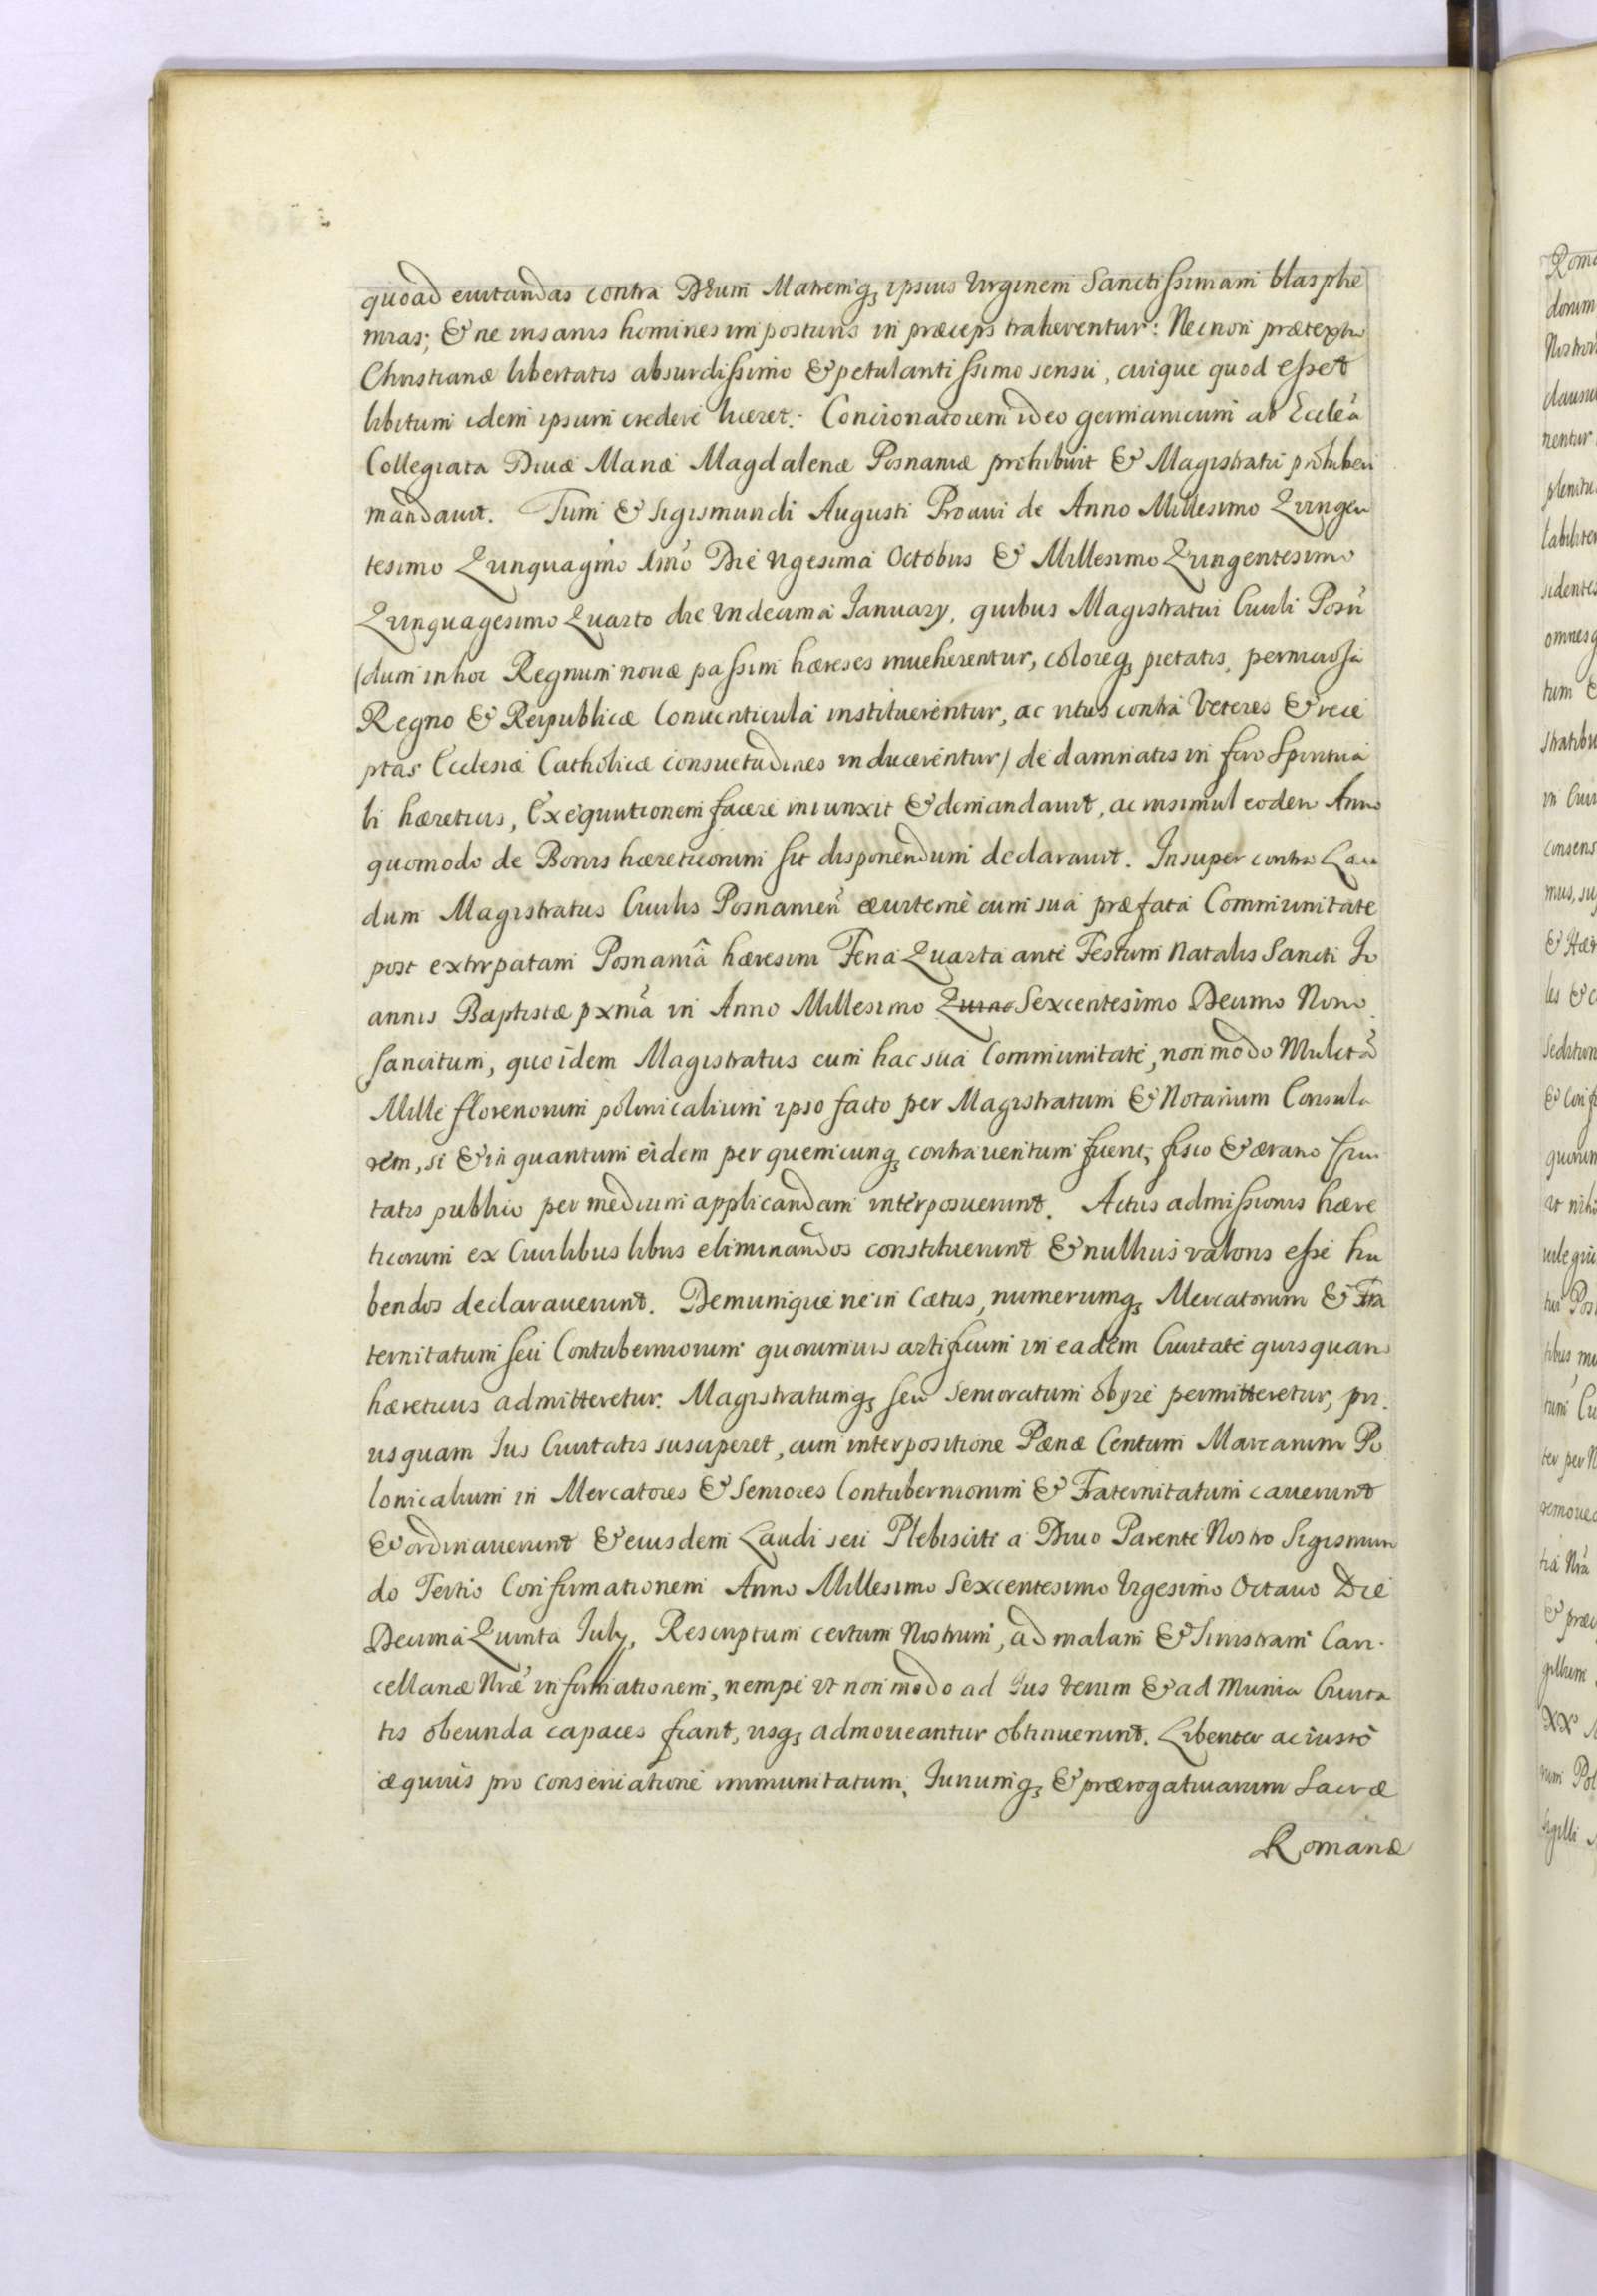 quoad euitandas contra DEum Matremq3 ipsius Virginem Sanctissimam blasphe
mias; & ne insanis homines imposturis in præceps traherentur: Necnon prætextu
Christianæ libertatis absurdissimo & petulantissimo sensu, cuique quod esset
libitum idem ipsum credere liceret: Concionatorem ideo germanicum ab Eccleã
Collegiata Diuæ Mariæ Magdalenæ Posnaniæ prohibuit & Magistratui prohiberi
mandauit. Tum & Sigismundi Augusti Proaui de Anno Millesimo Quingen
tesimo Quinquagmo 1mo Die Vigesima Octobris & Millesimo Quingentesimo
Quinquagesimo Quarto die Vndecima January, quibus Magistratui Ciuili Posn̄
(dum in hoc Regnum nouæ passim hæreses inueherentur, coloreq3 pietatis, perniciosa
Regno & Reipublicæ Conuenticula instituerentur, ac ritus contra Veteres & rece
ptas Ecclesiæ Catholicæ consuetudines inducerentur) de damnatis in foro Spiritua
li hæreticis, Exequutionem facere iniunxit & demandauit, ac insimul eodem Anno
quomodo de Bonis hæreticorum sit disponendum declarauit. Insuper contra Lau
dum Magistratus Ciuilis Posnanien̄ æuiterne cum sua præfata Communitate
post extirpatam Posnaniâ hæresim Feria Quarta ante Festum Natalis Sancti Jo
annis Baptistæ pxmã in Anno Millesimo Quing Sexcentesimo Decimo Nono
sancitum, quo idem Magistratus cum hac sua Communitate, non modo Mulctã
Mille florenorum polonicalium ipso facto per Magistratum & Notarium Consula
rem, si & in quantum eidem per quemcunq3 contrauentum fuerit, fisco & ærario Ciui
tatis publico per medium applicandam interposuerunt. Actus admissionis hære
ticorum ex Ciuilibus libris eliminandos constituerunt & nullius valoris esse ha
bendos declarauerunt. Demumque ne in Cætus, numerumq3 Mercatorum & Fra
ternitatum seu Contuberniorum quorumuis artificum in eadem Ciuitate quisquam
hæreticus admitteretur. Magistratumq3 seu Senioratum obyre permitteretur, pri
usquam Ius Ciuitatis susciperet, cum interpositione Pænæ Centum Marcarum Po
lonicalium in Mercatores & Seniores Contuberniorum & Fraternitatum cauerunt
& ordinauerunt & eiusdem Laudi seu Plebisciti a Diuo Parente Nostro Sigismun
do Tertio Confirmationem Anno Millesimo Sexcentesimo Vigesimo Octauo Die
Decima Quinta July, Rescriptum certum Nostrum, ad malam & Sinistram Can
cellariæ Nræ informationem, nempe vt non modo ad Ius verum & ad Munia Ciuita
tis obeunda capaces fiant, usq3 admoueantur obtinuerunt. Libenter ac iustè
æquius pro conseruatione immunitatum, Juriumq3 & prærogatiuarum Sacræ
Romanæ